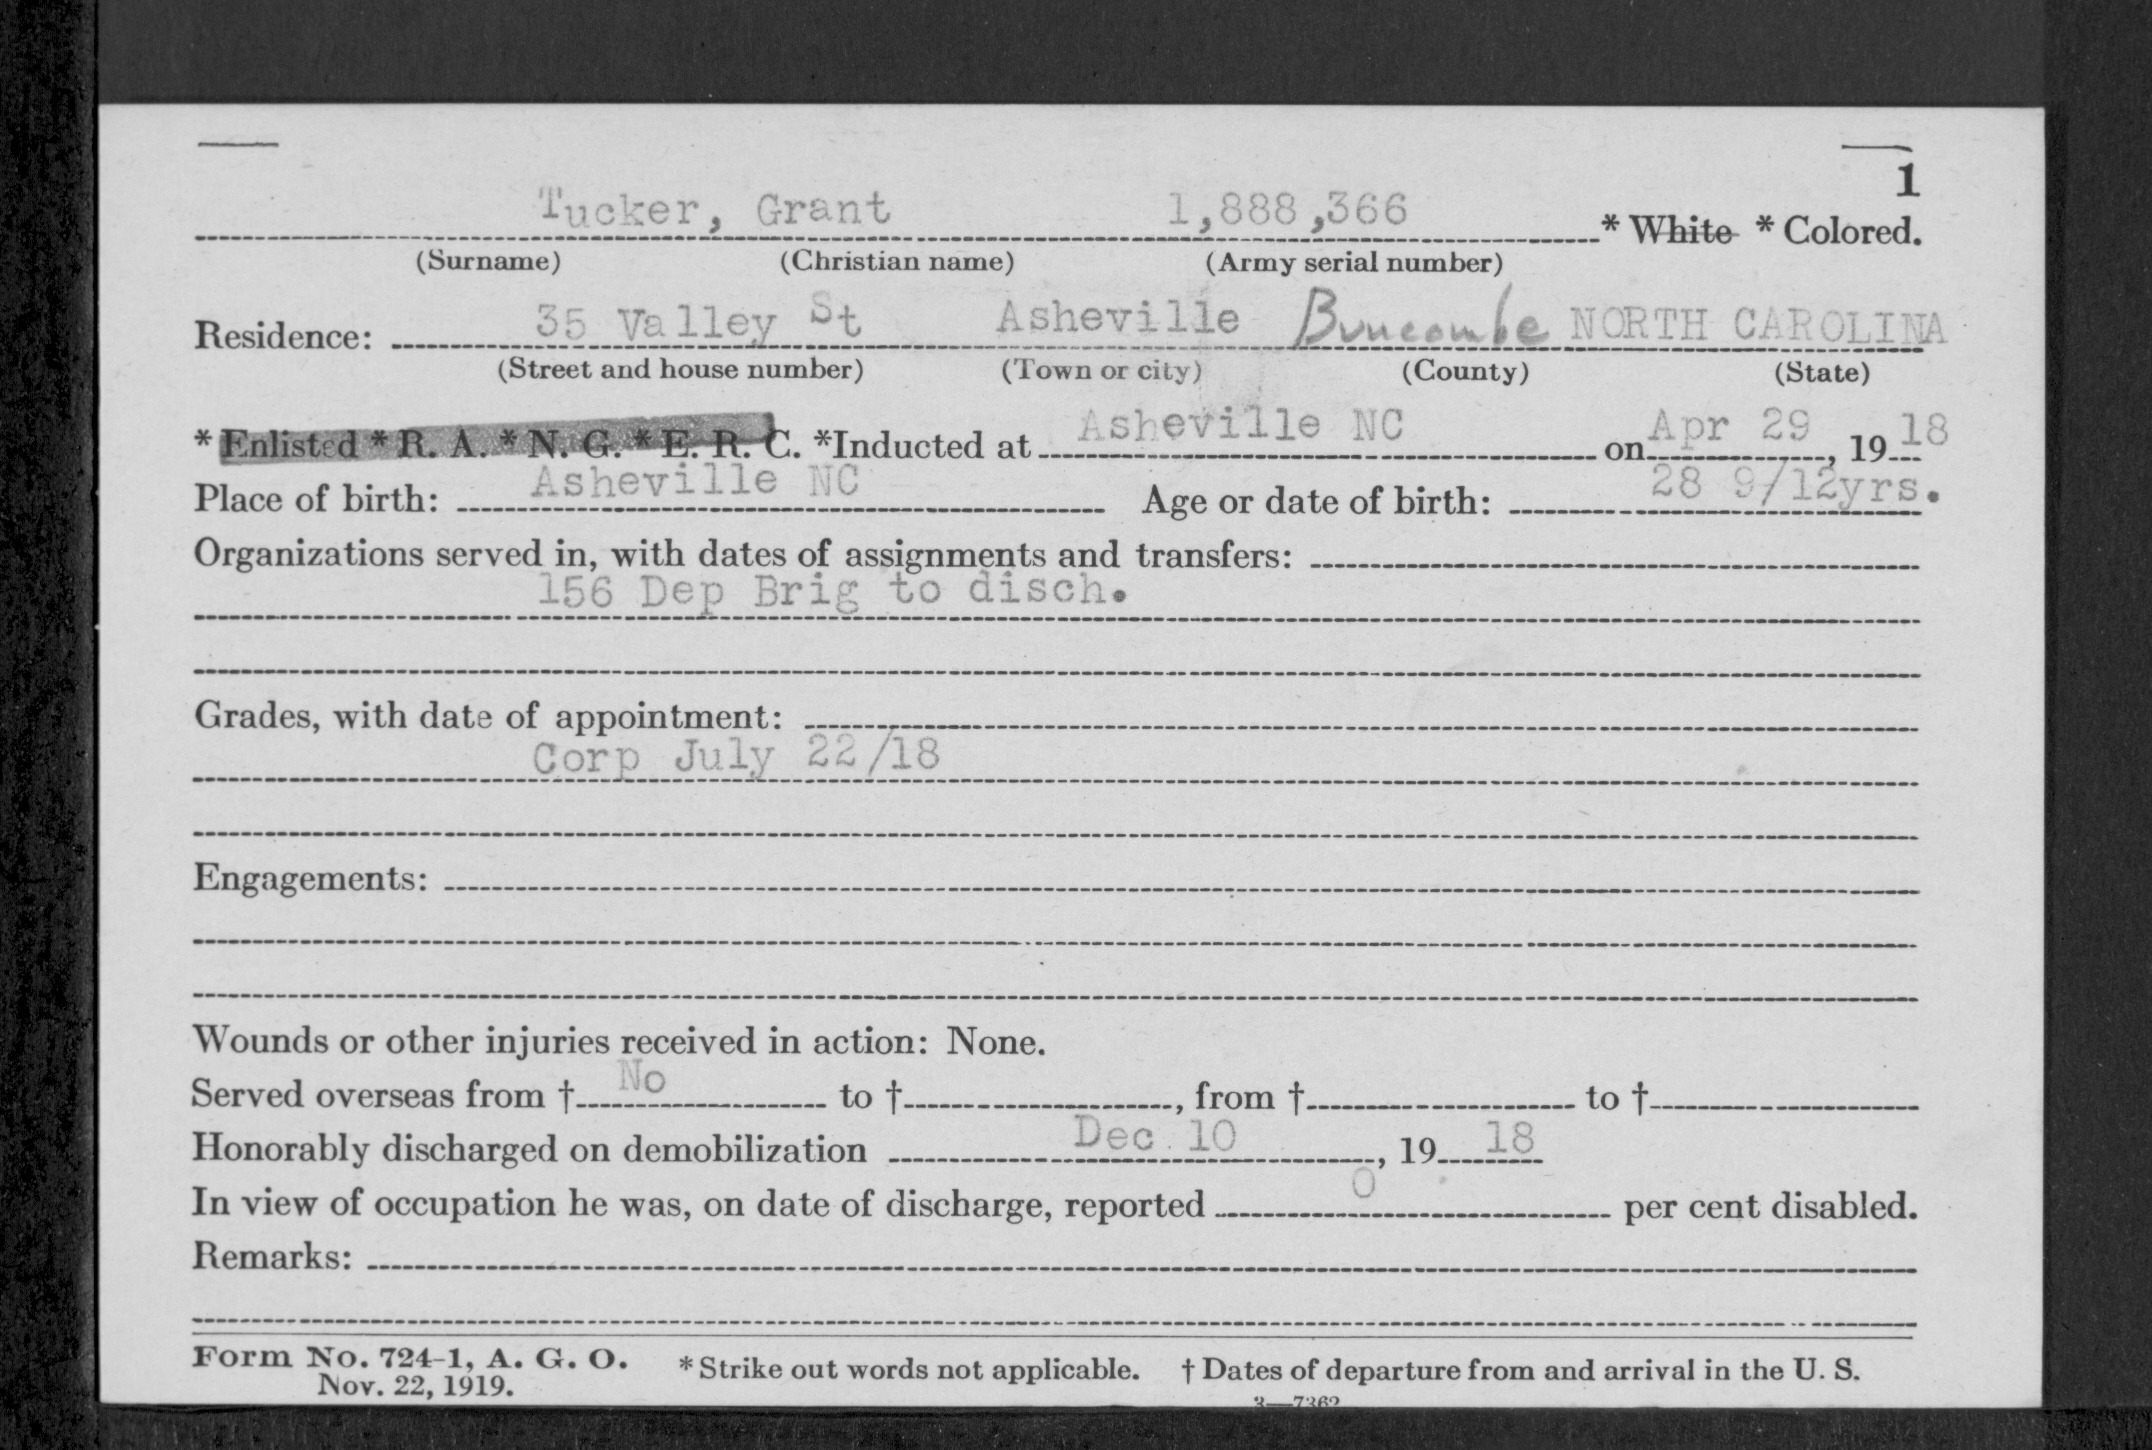 1
Tucker, Grant 1,888,366 * White * Colored.
(Surname) (Christian name) (Army serial number)
Residence: 35 Valley St Asheville Buncombe NORTH CAROLINA
(Street and house number) (Town or city) (County) (State)
* Enlisted * R. A. * N. G. * E. R. C. *Inducted at Asheville NC on Apr 29, 19 18
Place of birth: Asheville NC Age or date of birth: 28 9/12yrs.
Organizations served in, with dates of assignments and transfers:
156 Dep Brig to disch.
Grades, with date of appointment:
Corp July 22/18
Engagements:
Wounds or other injuries received in action: None.
Served overseas from † No to †, from † to †
Honorably discharged on demobilization Dec 10, 19 18
In view of occupation he was, on date of discharge, reported 0 per cent disabled.
Remarks:
Form No. 724-1, A. G. O. * Strike out words not applicable. † Dates of departure from and arrival in the U. S.
Nov. 22, 1919.
3—7362